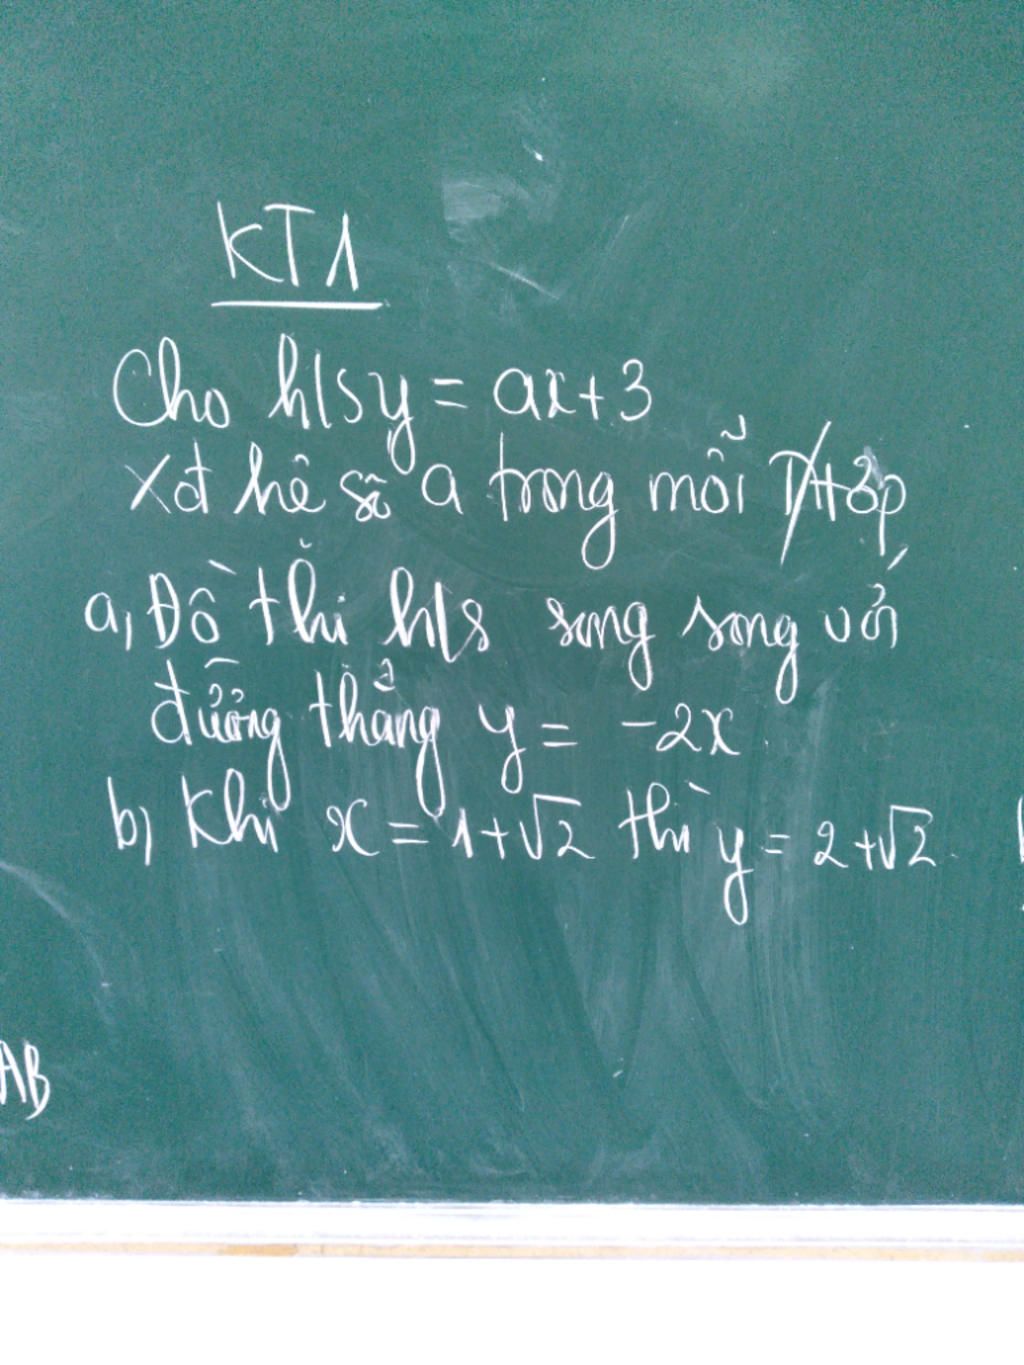 KT1
Cho h/s y = ax+3
Xđ hệ số a trong mỗi T/Hợp
a, Đồ thị h/s song song với
đường thẳng y = -2x
b, Khi x = 1+√2 thì y = 2+√2
AB